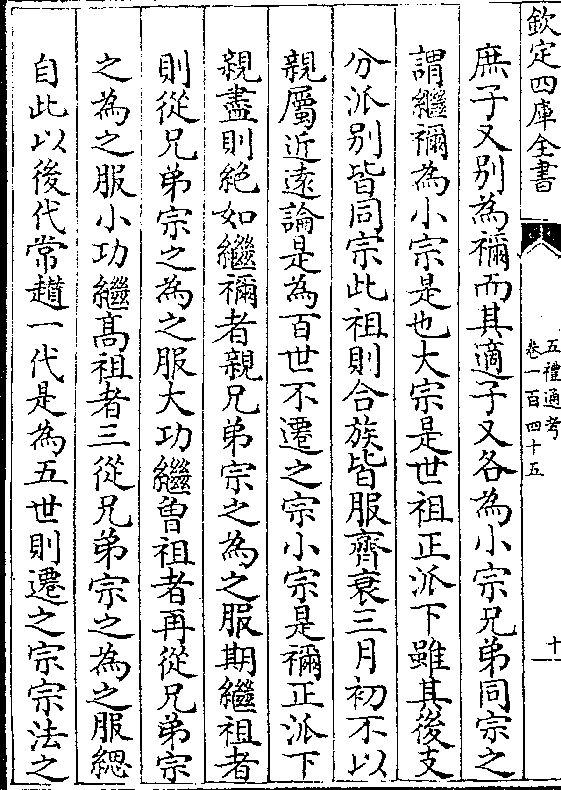 欽定四庫全書
五禮通考
卷一百四十五
十
庶子又别為禰而其適子又各為小宗兄弟同宗之
謂繼禰為小宗是也大宗是世祖正派下雖其後支
分派别皆同宗此祖則合族皆服齊衰三月初不以
親屬近遠論是為百世不遷之宗小宗是禰正派下
親盡則絶如繼禰者親兄弟宗之為之服期繼祖者
則從兄弟宗之為之服大功繼曾祖者再從兄弟宗
之為之服小功繼髙祖者三從兄弟宗之為之服緦
自此以後代常趲一代是為五世則遷之宗宗法之